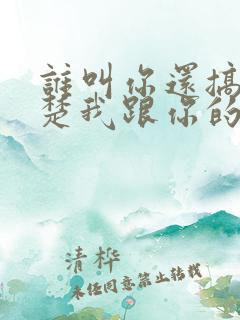 誰叫你還搞
楚我跟你的
清桦
未经同意禁止转载